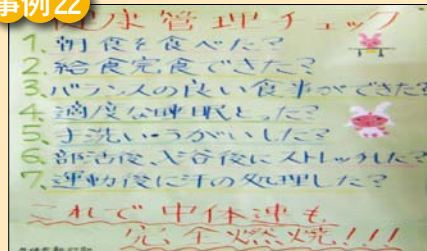 事例22
健康管理チェック
1. 朝食を食べた?
2. 給食完食できた?
3. バランスの良い食事ができた?
4. 適度な睡眠とった?
5. 手洗い・うがいした?
6. 部活後、入浴後にストレッチした?
7. 運動後に汗の処理した?
これで中体連も
完全燃焼!!!